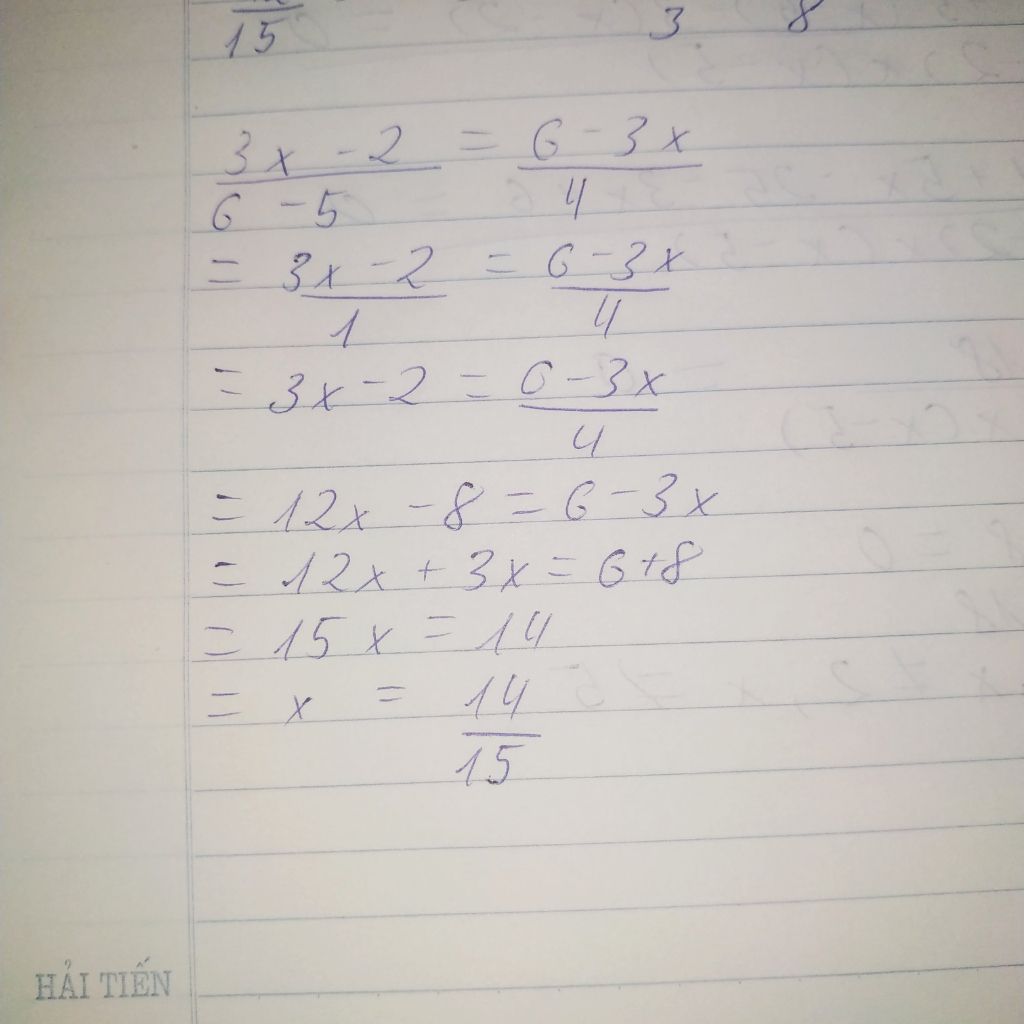 15 3 8
3x - 2 = 6 - 3x
6 - 5 4
= 3x - 2 = 6 - 3x
1 4
= 3x - 2 = 6 - 3x
4
= 12x - 8 = 6 - 3x
= 12x + 3x = 6 + 8
= 15x = 14
= x = 14
15
HẢI TIẾN